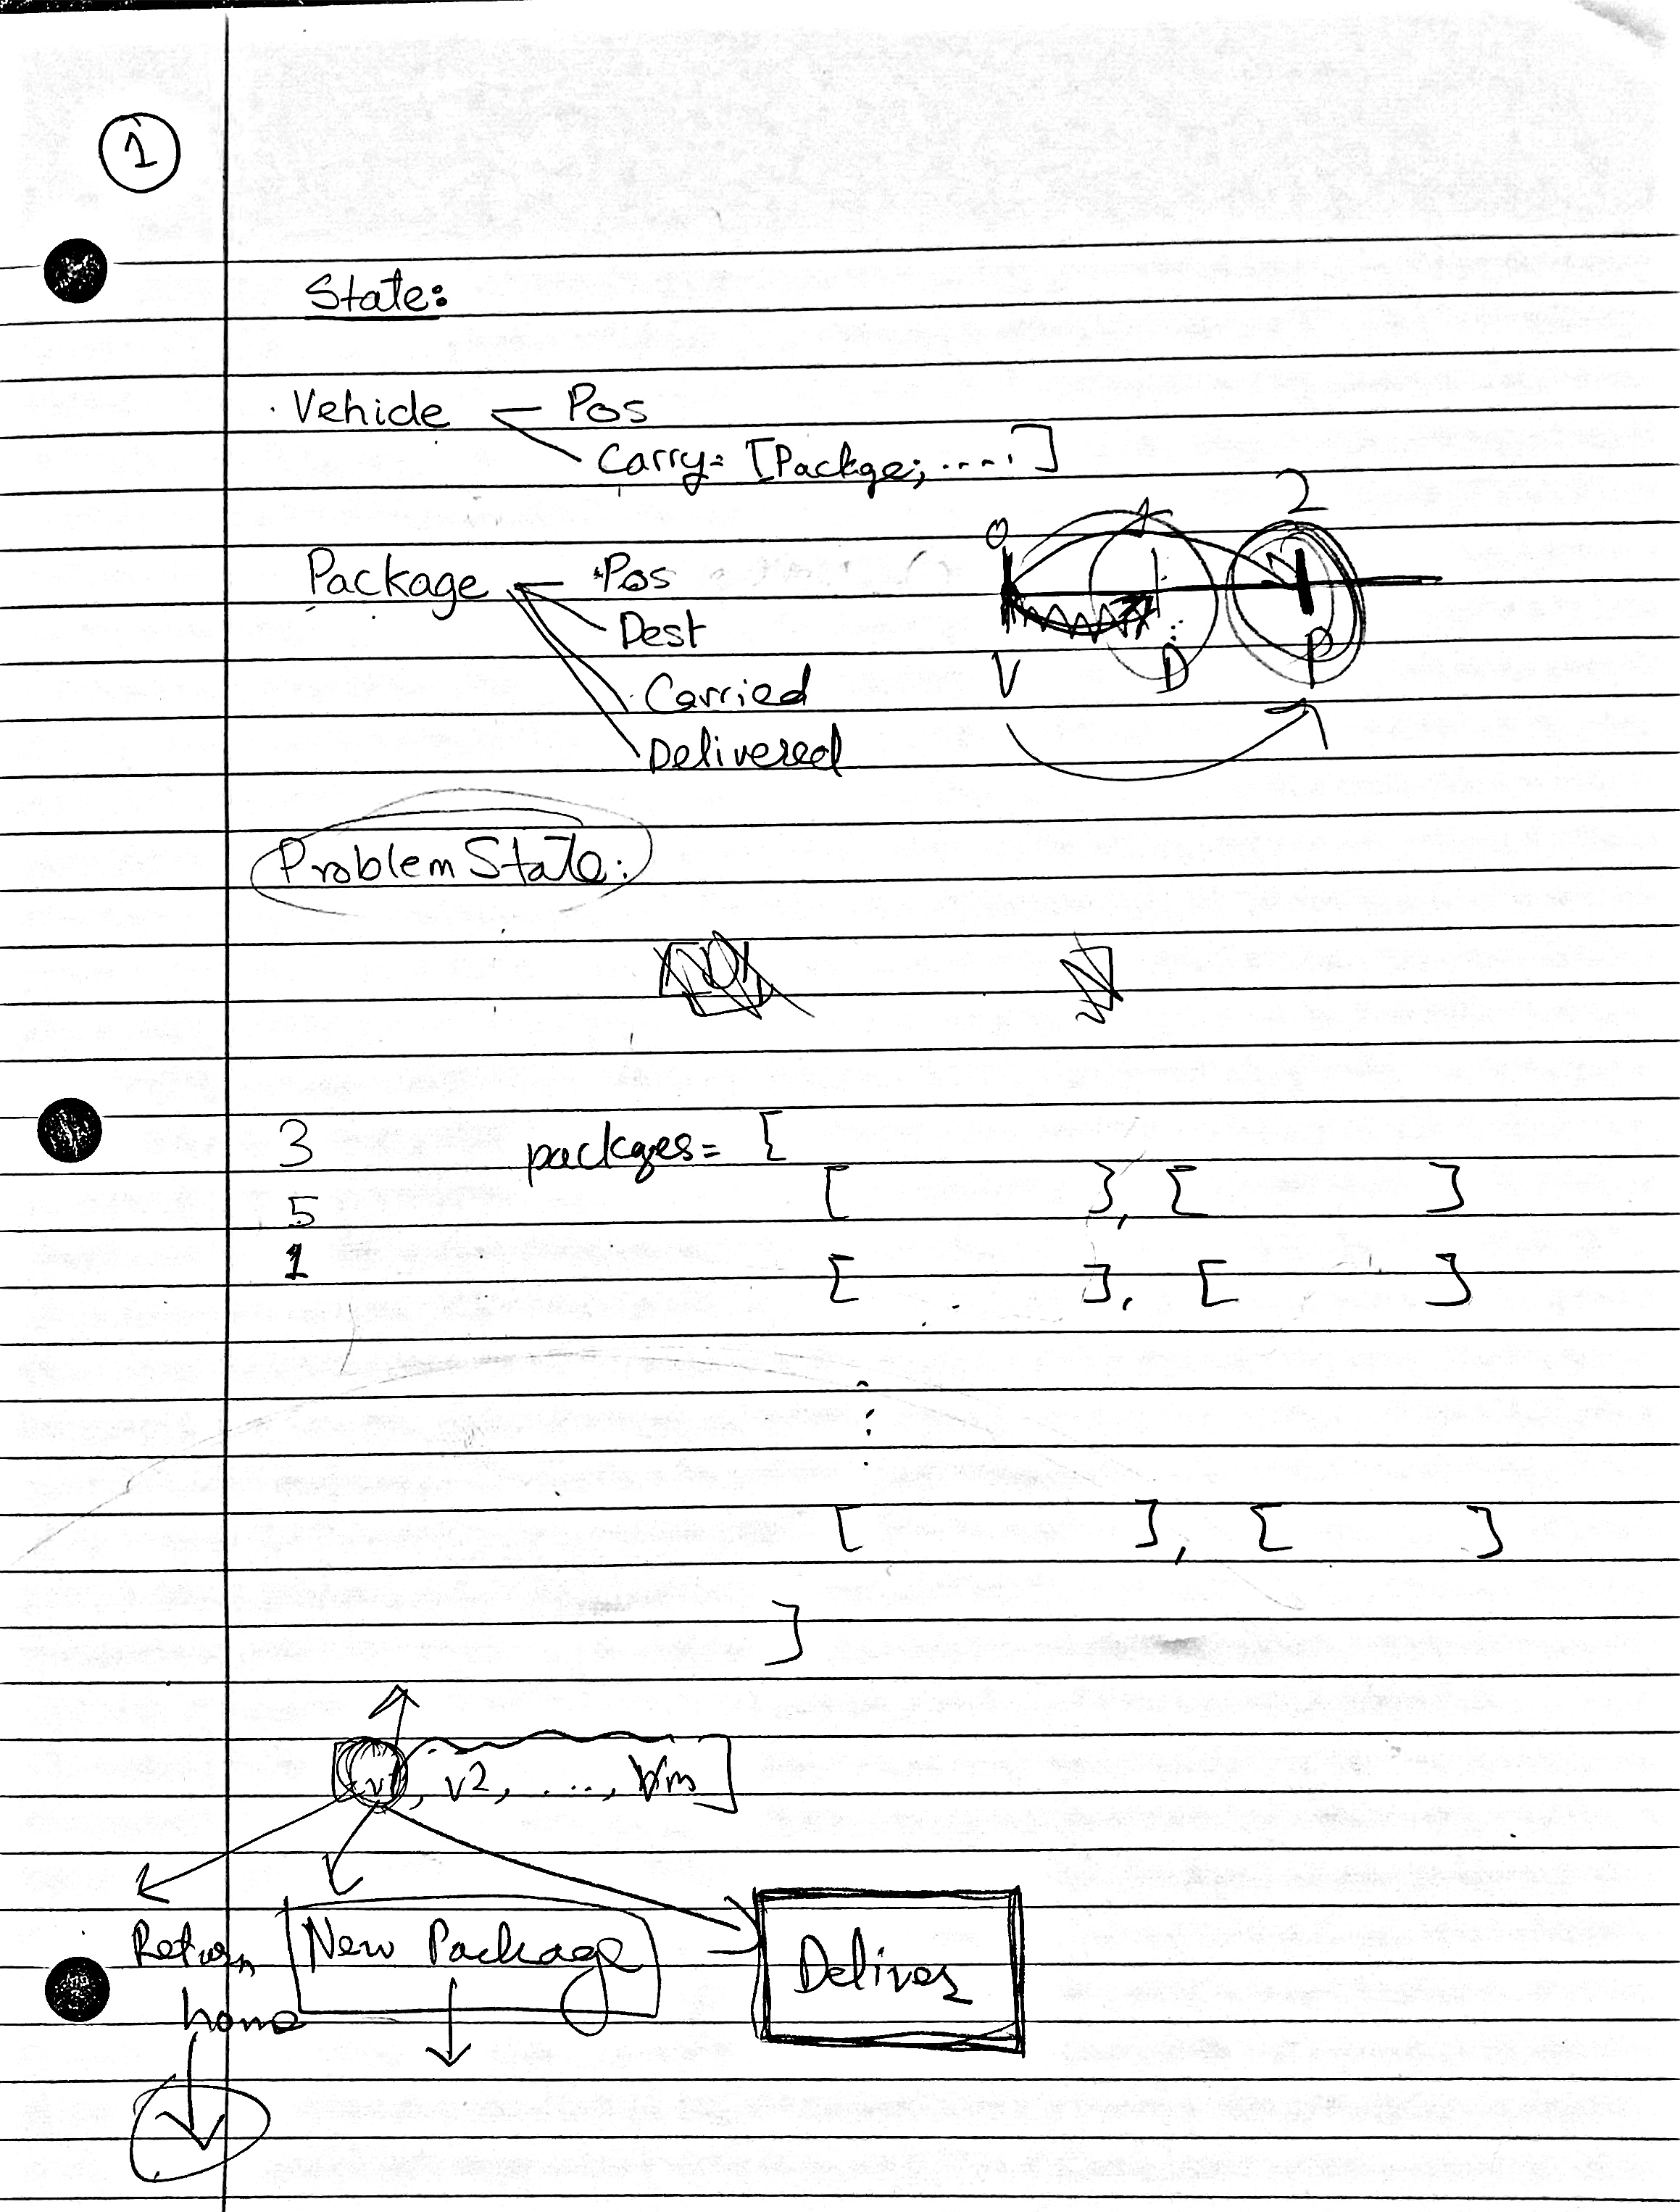 1
State:
Vehicle Pos
Carry= [Packge; ....]
0 1 2
Package Pos
Dest
V D P
Carried
Delivered
Problem State:
3 packges= [
[ ], [ ]
5
1 [ ], [ ]
⋮
[ ], [ ]
]
[v1, v2, ..., Vm]
Return New Package Deliver
home